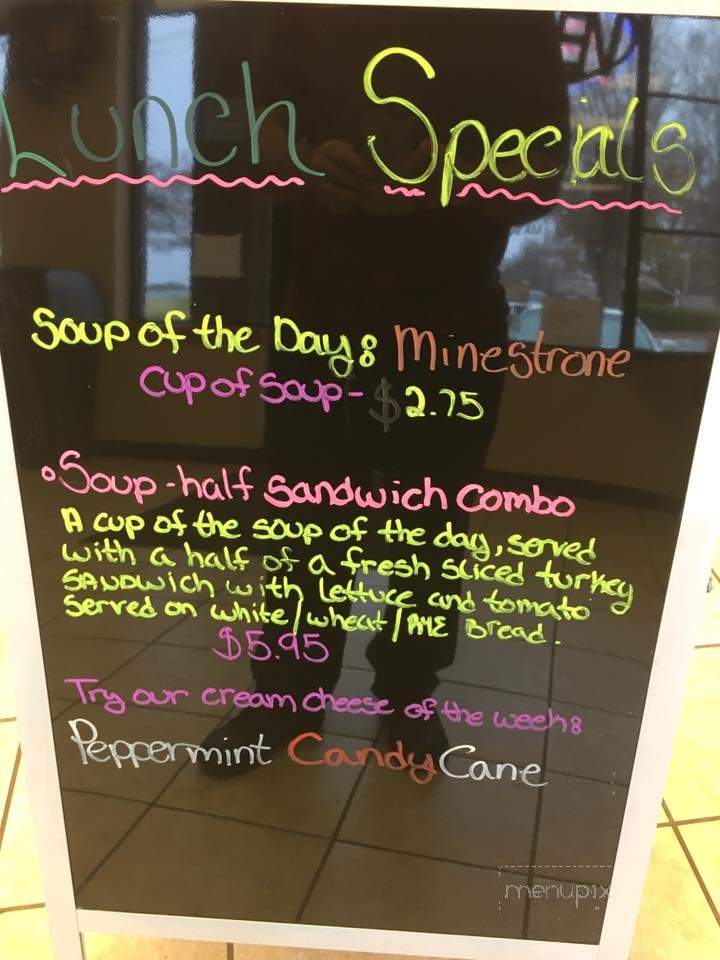 Lunch Specials
Soup of the Day: Minestrone
Cup of Soup - $2.75
Soup-half Sandwich Combo
A cup of the soup of the day, served
with a half of a fresh sliced turkey
SANDWICH with Lettuce and tomato
Served on white/wheat/RYE Bread.
$5.95
Try our cream cheese of the week:
Peppermint Candy Cane
menupix